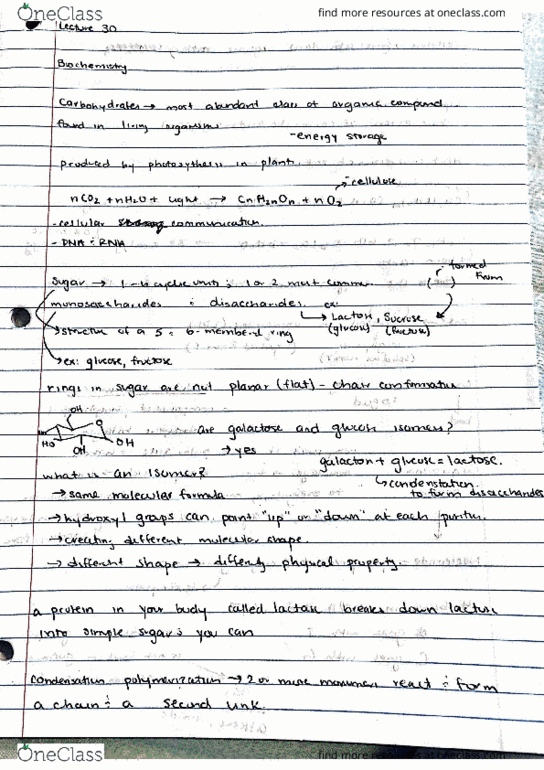 OneClass
find more resources at oneclass.com
Lecture 30
Biochemistry
Carbohydrates → most abundant class of organic compound
found in living organisms
-energy storage
produced by photosythesis in plants
→cellulose
nCO2 + nH2O + light → CnH2nOn + nO2
-cellular communication.
- DNA & RNA
Sugar → 1 - cyclic units; 1 or 2 most comm.
formed from
monosaccharides & disaccharides. ex:
→ Lactose, Sucrose
→structure of a 5 & 6-membered ring
(glucose) (fructose)
→ex: glucose, fructose
rings in sugar are not planar (flat) - chair conformation
OH
O
HO
OH
OH
are galactose and glucose isomers?
→ yes
galacton + glucose = lactose.
what is an isomer?
→condenstation
to form disaccharides
→same molecular formula
→hydroxyl groups can point "up" or "down" at each
→creating different molecular shape.
→ different shape → differently physical property.
a protein in your body called lactase breaks down lactose
into simple sugars you can
condensation polymerization → 2 or more monomers react & form
a chain & a second link.
OneClass
find more resources at oneclass.com